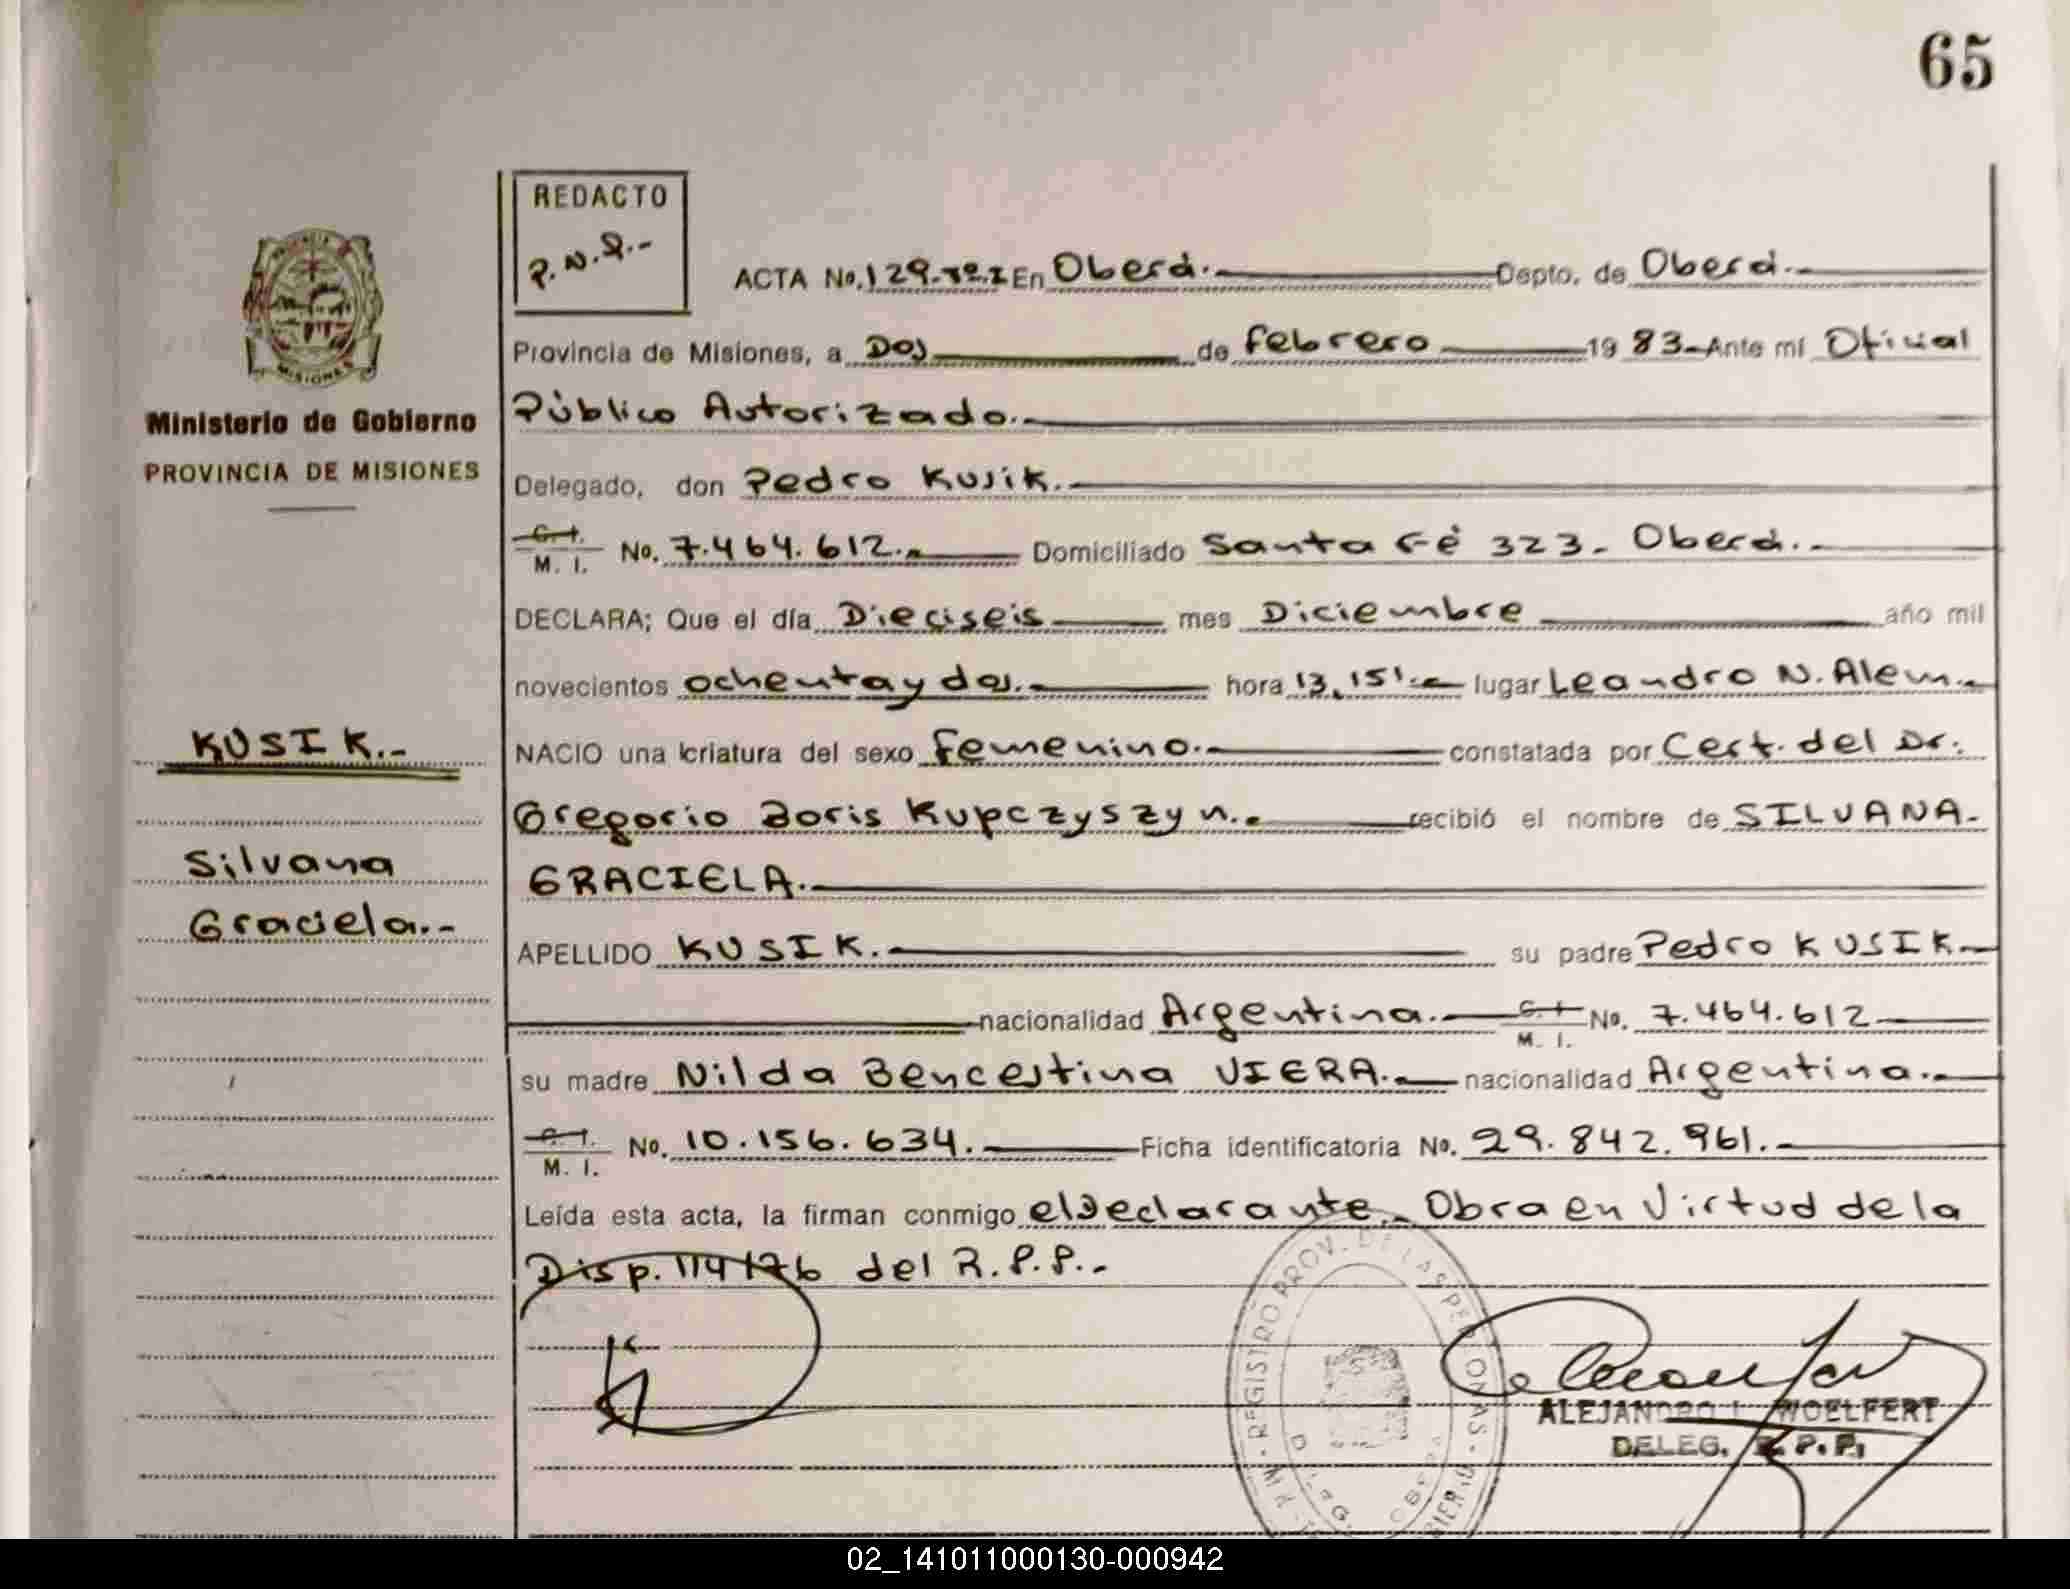 65
REDACTO
P.N.R.-
ACTA No. 129.Tº.I En Oberá.- Depto. de Oberá.-
Provincia de Misiones, a Dos de febrero 1983.- Ante mí Oficial
Público Autorizado.-
Delegado, don Pedro Kusik.-
C. I.
M. I. No. 7.464.612.- Domiciliado Santa Fé 323.- Oberá.-
DECLARA; Que el día Dieciseis mes Diciembre año mil
novecientos ochenta y dos.- hora 13,15'.- lugar Leandro N. Alem.-
NACIO una criatura del sexo femenino.- constatada por Cert. del Dr.
Gregorio Boris Kupczyszyn.- recibió el nombre de SILVANA-
GRACIELA.-
APELLIDO KUSIK.- su padre Pedro KUSIK.-
nacionalidad Argentina.- C. I.
M. I. No. 7.464.612
su madre Nilda Bencestina VIERA.- nacionalidad Argentina.-
C. I.
M. I. No. 10.156.634.- Ficha identificatoria No. 29.842.961.-
Leída esta acta, la firman conmigo el Declarante.- Obra en Virtud de la
Disp. 114/76 del R.P.P.-
MISIONES
Ministerio de Gobierno
PROVINCIA DE MISIONES
KUSIK.-
Silvana
Graciela.-
REGISTRO PROV. DE LAS PERSONAS
ALEJANDRO L. WOELFERT
DELEG. R.P.P.
02_141011000130-000942